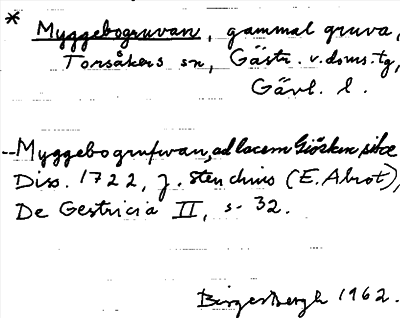 * Myggebogruvan, gammal gruva,
Torsåkers sn, Gästr. v. doms. tg,
Gävl. l.
-- Myggebo grufwan, ad lacem Giösken sitæ
Diss. 1722, J. Stenchius (E. Alrot),
De Gestricia II, s. 32.
Birger Bergh 1962.